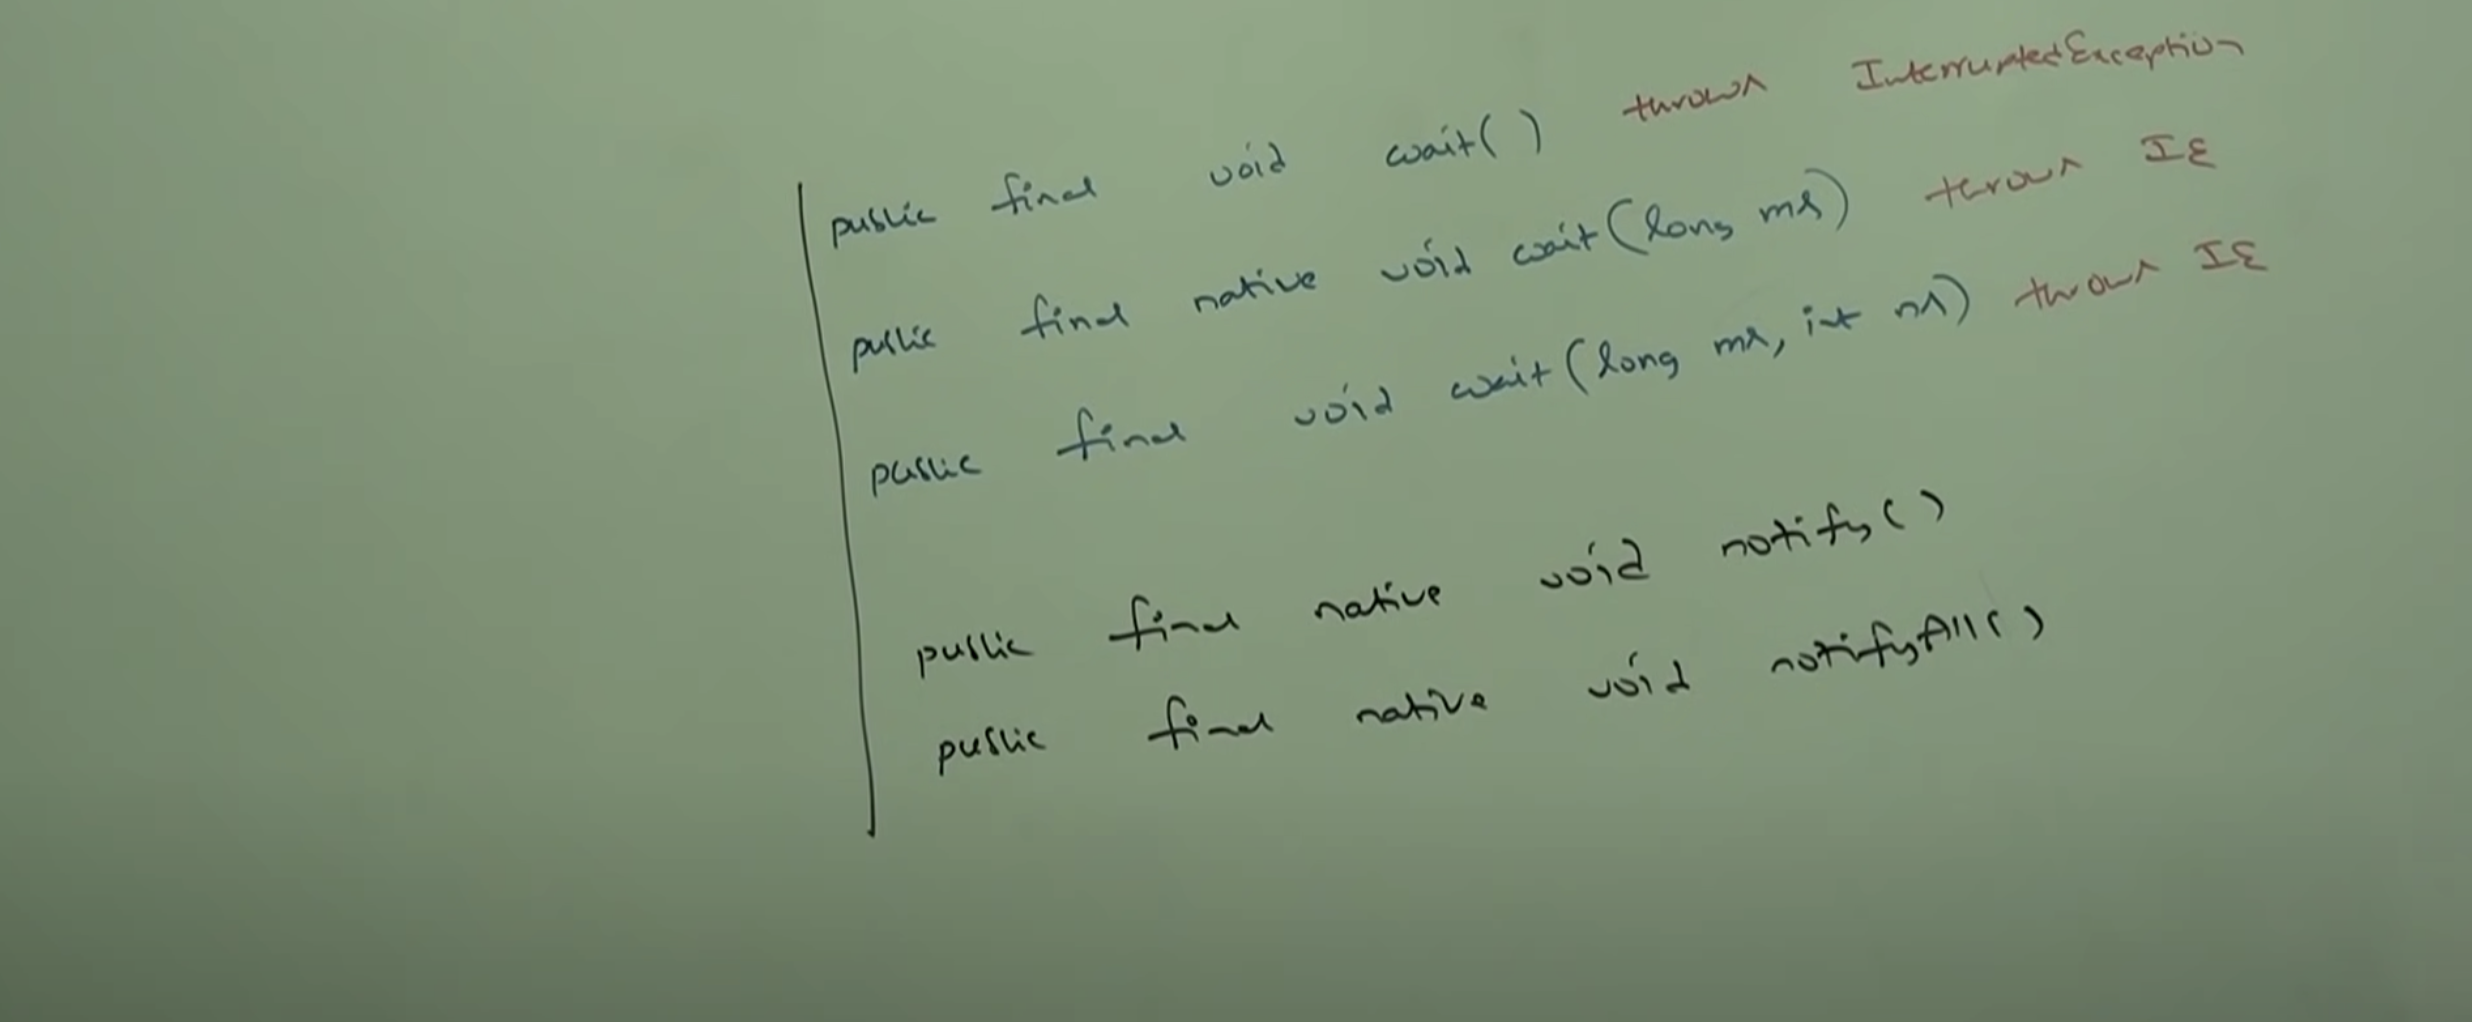 public final void wait() throws InterruptedException
public final native void wait(long ms) throws IE
public final void wait(long ms, int ns) throws IE
public final native void notify()
public final native void notifyAll()